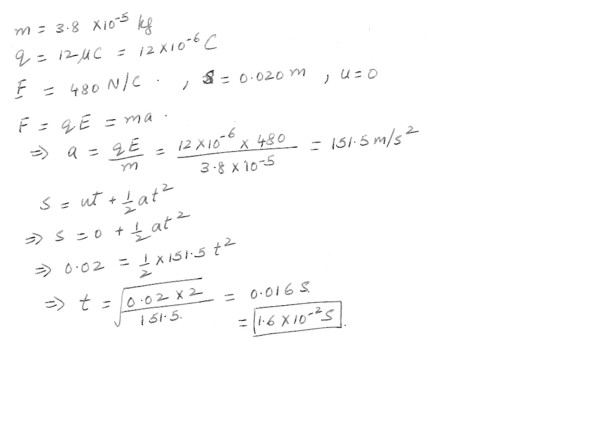 m = 3.8 x10^-5 kg
q = 12μC = 12x10^-6 C
F = 480 N/C . , s = 0.020 m , u = 0
F = qE = ma .
⇒ a = qE/m = (12x10^-6 x 480)/(3.8 x 10^-5) = 151.5 m/s^2
s = ut + 1/2 at^2
⇒ s = 0 + 1/2 at^2
⇒ 0.02 = 1/2 x 151.5 t^2
⇒ t = √((0.02 x 2)/151.5.) = 0.016 s
= 1.6 x10^-2 S .